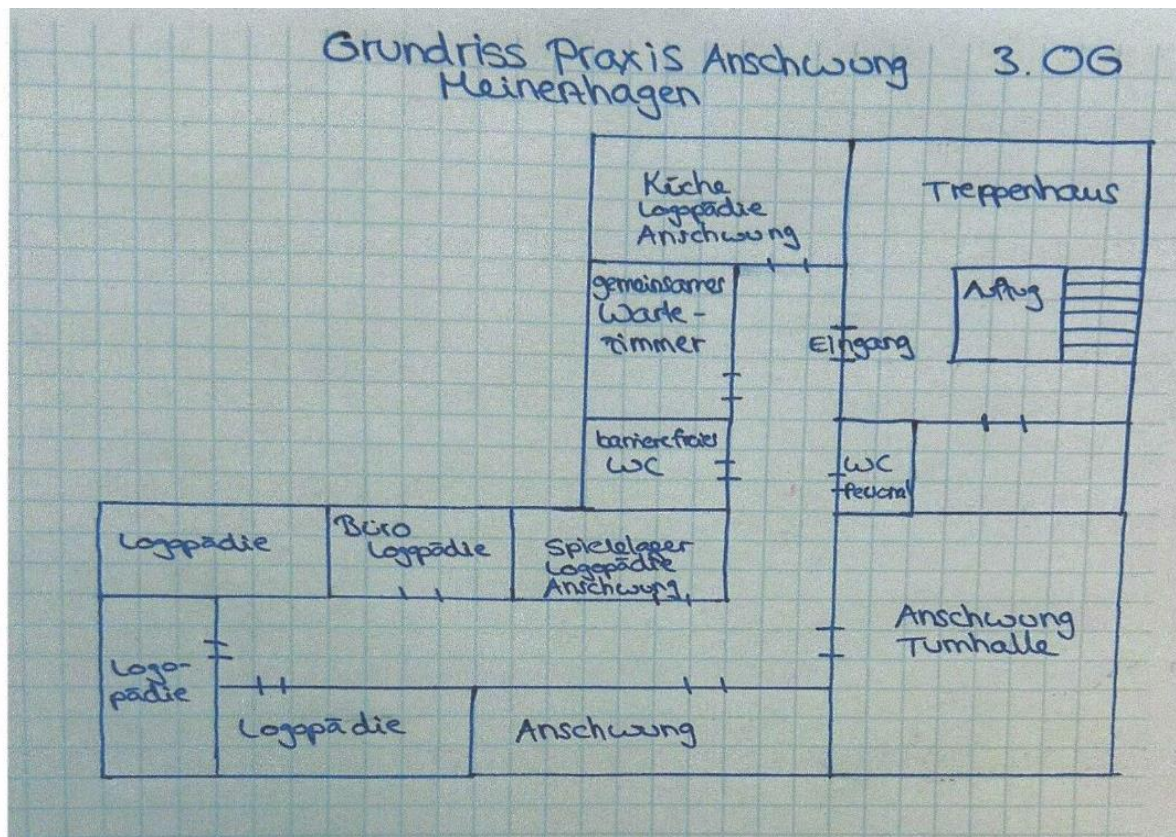 Grundriss Praxis Anschwung 3. OG
Meinerzhagen
Küche
Logopädie
Anschwung
Treppenhaus
gemeinsames
Warte-
zimmer
Eingang
Aufzug
barrierefreies
WC
WC
Personal
Logopädie
Büro
Logopädie
Spielelager
Logopädie
Anschwung
Anschwung
Turnhalle
Logo-
pädie
Logopädie
Anschwung